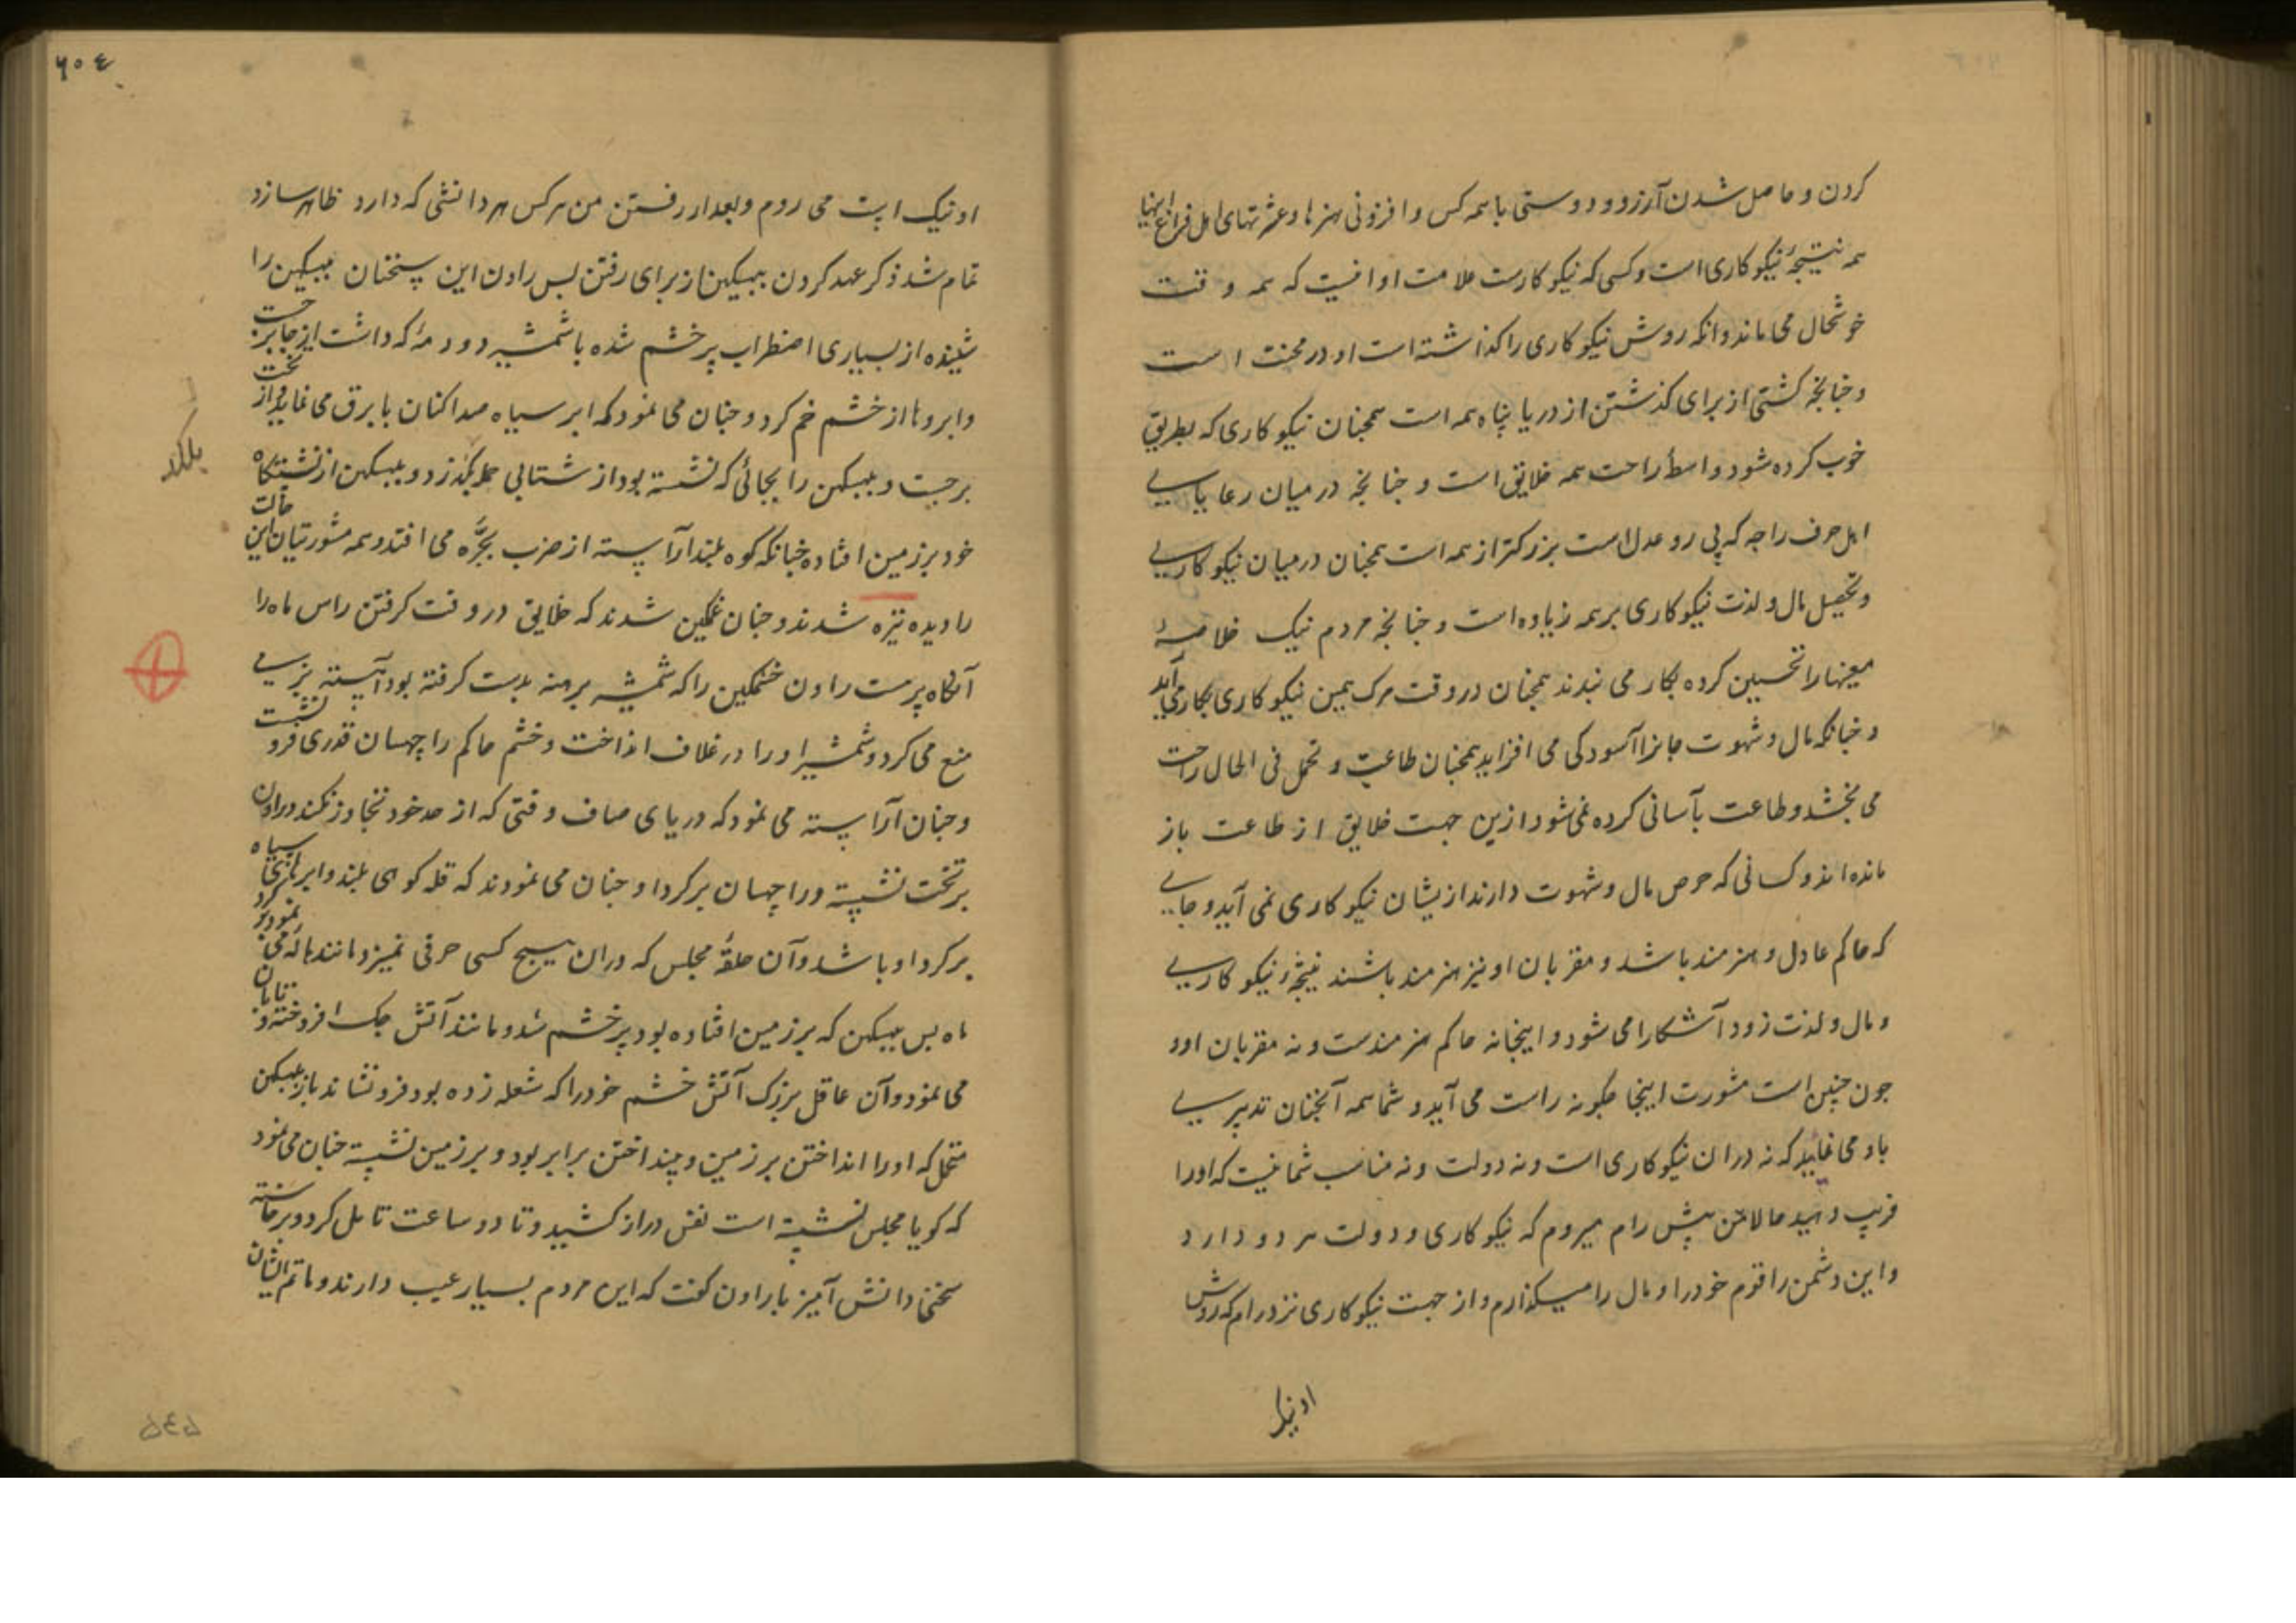 کردن و حاصل شدن آرزو و دوستی با همه کس و افزونی هنرها و عشرتهای اهل فراغ اینها
همه نتیجهٔ نیکوکاری است و کسی که نیکوکارست علامت او انیست که همه وقت
خوشحال می ماند و انکه روش نیکوکاری را کذاشته است او در محنت است
و جنانجه کشتی از برای کذشتن از دریا پناه همه است همجنان نیکوکاری که بطریق
خوب کرده شود واسطهٔ راحت همه خلایق است و جنانجه در میان رعایای
اهل حرف راجه که پی رو عدل است بزرکتر از همه است همجنان در میان نیکوکاری
و تحصیل مال و لذت نیکوکاری بر همه زیاده است و جنانجه مردم نیک خلاصهٔ
معنیها را تحسین کرده بکار می بندند همجنان در وقت مرک همین نیکوکاری بکار می آید
و جنانکه مال و شهوت جانرا آسودکی می افزاید همجنان طاعت و تحمل فی الحال راحت
می بخشد و طاعت بآسانی کرده نمی شود ازین جهت خلایق از طاعت باز
مانده اند و کسانی که حرص مال و شهوت دارند ازیشان نیکوکاری نمی آید و جایی
که حاکم عادل و هنرمند باشد و مقربان او نیز هنرمند باشند نتیجهٔ نیکوکاری
و مال و لذت زود آشکارا می شود و اینجا نه حاکم هنرمندست و نه مقربان او و
جون جنین است مشورت اینجا جکونه راست می آید و شما همه آنجنان تدبیری
باو می نمایید که نه دران نیکوکاری است و نه دولت و نه مناسب شما نیست که او را
فریب دهید حالا من پیش رام میروم که نیکوکاری و دولت هر دو دارد
و این دشمن را قوم خود را و مال را میکذارم و از جهت نیکوکاری نزد رام که روش
او نیک
۶۰٤
او نیک است می روم و بعد از رفتن من هر کس هر دانشی که دارد ظاهر سازد
تمام شد ذکر عهد کردن ببیکهن از برای رفتن پس راون این سخنان ببیکهن را
شنیده از بسیاری اضطراب پر خشم شده با شمشیر دو دمهٔ که داشت از جا برجست
و ابروها از خشم خم کرد و جنان می نمود که ابر سیاه صدا کنان با برق می نماید و از تخت
برجست و ببیکهن را بجائی که نشسته بود از شتابی لکد زد و ببیکهن از نشستکاه
خود بر زمین افتاده جنانکه کوه بلند آراسته از ضرب بجره می افتد و همه مشورتیان این حالت
را دیده تیره شدند و جنان غمکین شدند که خلایق در وقت کرفتن راس ماه را
آنکاه پرهست راون خشمکین را که شمشیر برهنه بدست کرفته بود آهسته برمی
منع می کرد و شمشیر او را در غلاف انداخت و خشم حاکم را جهسان قدری فرو نشست
و جنان آراسته می نمود که دریای صاف وقتی که از حد خود تجاوز نکند و راون
بر تخت نشسته و راجهسان بر کرد او جنان می نمودند که قله کوهی بلند و ابرهای سیاه
بر کرد او باشد و آن حلقهٔ مجلس که دران هیچ کسی حرفی نمیزد مانند هاله می نمود بر کرد
ماه پس ببیکهن که بر زمین افتاده بود پر خشم شد و مانند آتش جک افروخته و تابان
می نمود و آن عاقل بزرک آتش خشم خود را که شعله زده بود فرو نشاند باز ببیکهن
متحمل که او را انداختن بر زمین و نینداختن برابر بود و بر زمین نشسته جنان می نمود
که کویا مجلس نشسته است نفس دراز کشید و تا دو ساعت تامل کرد و برخاسته
سخنی دانش آمیز با راون کفت که این مردم بسیار عیب دارند و ماتم ایشان
بلکد